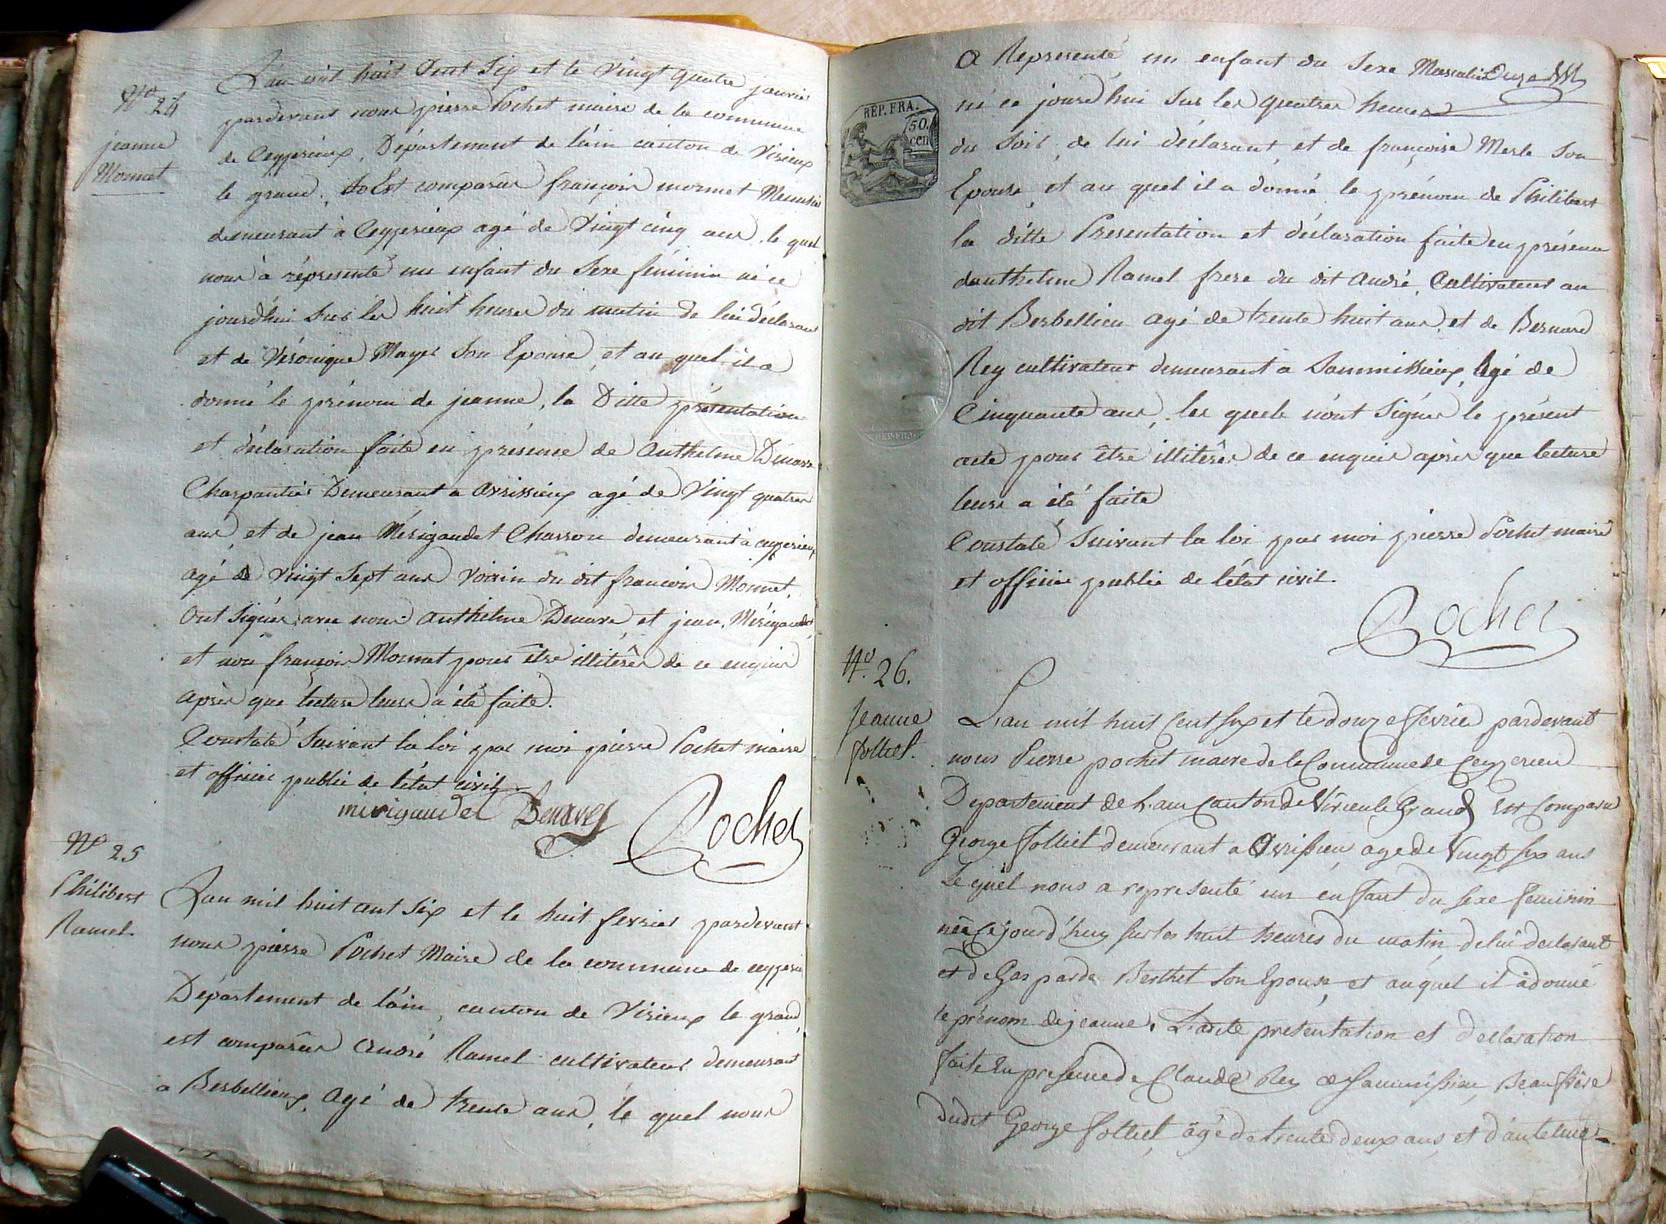 N.o 24
jeanne
Monnet
L'an mil huit Cent Six et le Vingt quatre janvier
pardevant nous pierre Pochet maire de la commune
de Ceyzerieux, Département de l'ain canton de Virieux
le grand, Est comparûe françois monnet
demeurant à Ceyzerieux agé de Vingt cinq ans, le quel
nous à réprésenté un enfant du Sexe féminin né ce
jourd'hui Sur les huit heures du matin de lui déclarant
et de Véronique Mayet Son Epouse, et au quel il a
donné le prénom de jeanne, la Ditte présentation
et déclaration faite en présence de Anthelme
Charpantier Demeurant a avrissieux agé de Vingt quatre
ans et de jean Mérigaudet Charron demeurant à ceyzerieux
agé de Vingt Sept ans Voisin du dit francois Monnet.
Ont Signés avec nous Anthelme et jean Mérigaudet
et non françois Monnet pour être illitéré de ce enquis
après que lecture leur à été faite.
Constaté Suivant la loi par moi pierre Pochet maire
et officier public de l'état civil
mirigaudet Pochet
N.o 25
Philibert
Ramel
L'an mil huit cent Six et le huit fevrier pardevant
nous pierre Pochet Maire de la commune de ceyzerieu
Département de l'ain, canton de Virieux le grand,
est comparûe André Ramel cultivateur demeurant
a Berbellieux, Agé de trente ans, le quel nous
a Représenté un enfant du Sexe Masculin
né ce jourd'hui Sur les quatres heures
du Soir, de lui déclarant et de françoise Merle Son
Epouse, et au quel il a donné le prénom de Philibert
la ditte Présentation et déclaration faite en présence
danthelme Ramel frere du dit André, Cultivateur au
dit Berbellieu agé de trente huit ans, et de Bernard
Rey cultivateur demeurant à Sammissieux, Agé de
Cinquante ans, les quels n'ont Signés le présent
acte pour être illitérés de ce enquis après que lecture
leur a été faite
Constaté Suivant la loi par moi pierre Pochet maire
et officier public de l'état civil.
Pochet
REP. FRA.
50.
cen
N.o 26.
Jeanne
folliet.
L'an mil huit Cent six et le douze fevrier pardevant
nous Pierre pochet maire de la Commune de Ceyzerieu
Departement de Lain Canton de Virieu le Grand Est Comparu
George folliet demeurant a Avrissieu age de Vingt six ans
Lequel nous a representé un enfant du sexe feminin
née ce jourd'huy sur les huit heures du matin de lui declarant
et de Gasparde Berthet son epouse et auquel il a donné
le prénom de jeanne, Ladite presentation et declaration
faite en presence de Claude Rey de sammissieu, Beau frère
dudit George folliet, âgé de trente deux ans, et d'antelme